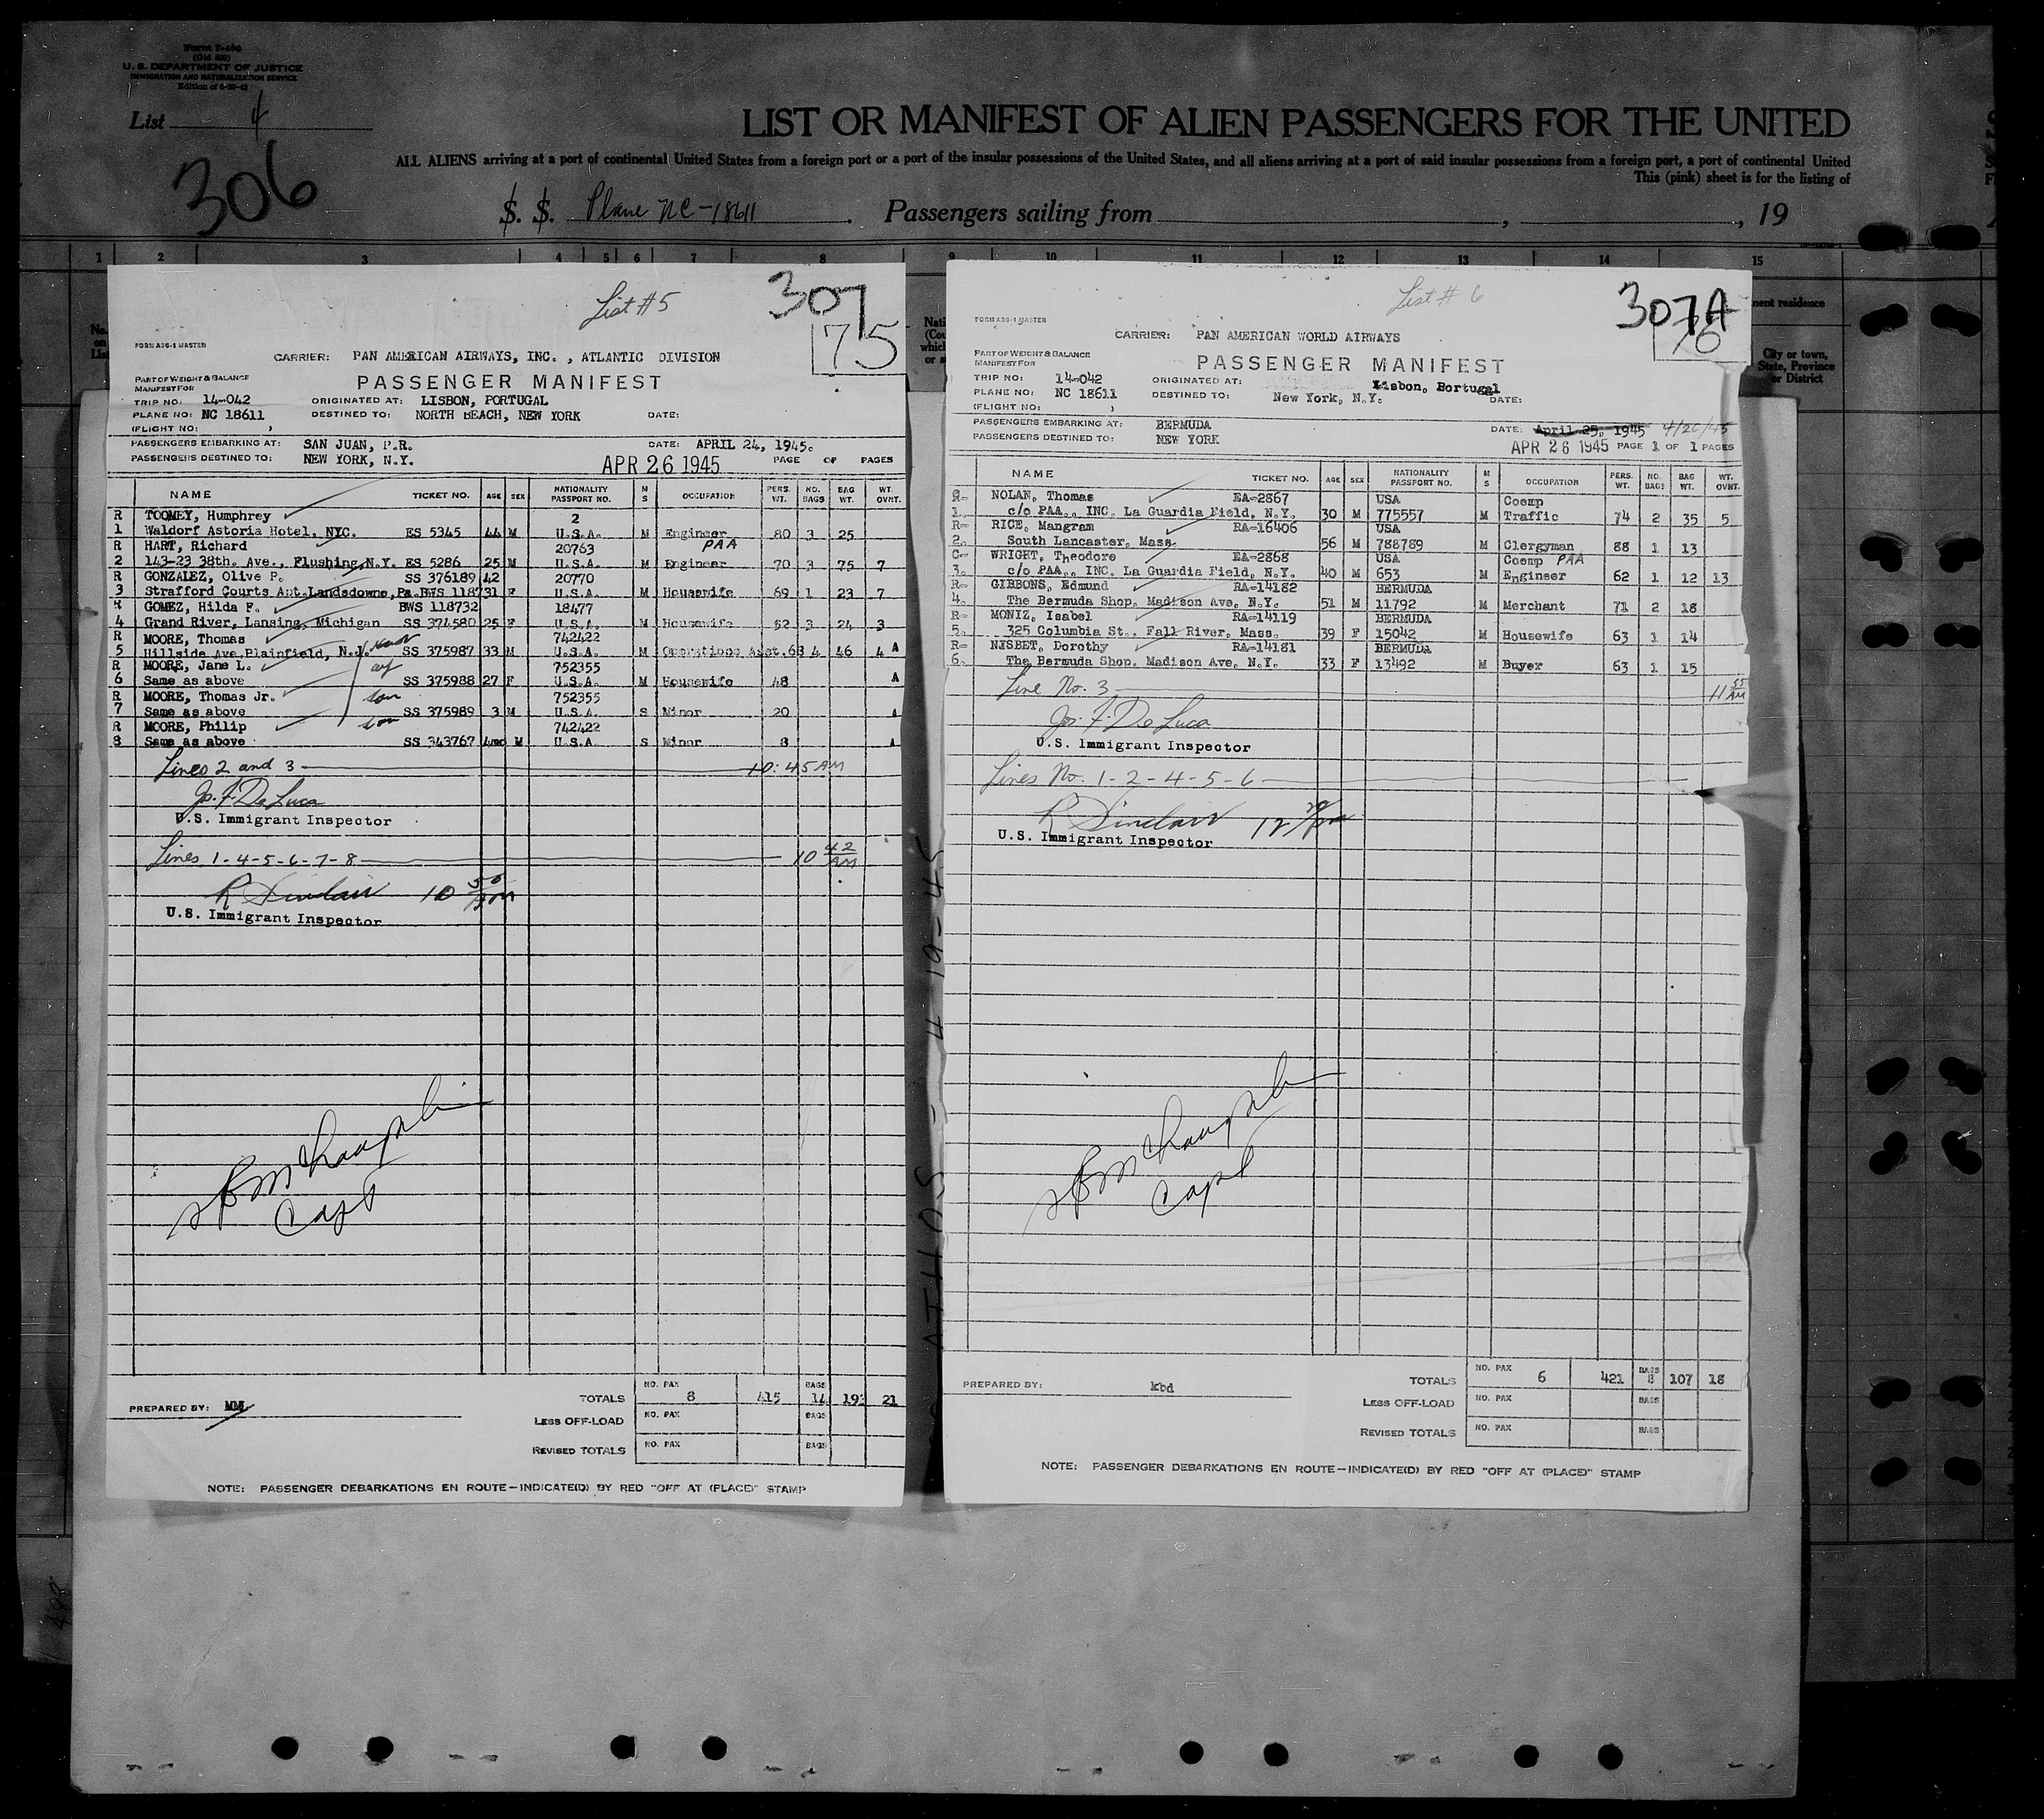 Form I-466
(Old 500)
U. S. DEPARTMENT OF JUSTICE
IMMIGRATION AND NATURALIZATION SERVICE
Edition of 6-20-42
List 4
306
LIST OR MANIFEST OF ALIEN PASSENGERS FOR THE UNITED
ALL ALIENS arriving at a port of continental United States from a foreign port or a port of the insular possessions of the United States, and all aliens arriving at a port of said insular possessions from a foreign port, a port of continental United
This (pink) sheet is for the listing of
S. S. Plane NC-18611. Passengers sailing from , , 19
1 2 3 4 5 6 7 8 9 10 11 12 13 14 15
List #5
307
75
FORM A36-1 MASTER
CARRIER: PAN AMERICAN AIRWAYS, INC., ATLANTIC DIVISION
PASSENGER MANIFEST
PART OF WEIGHT & BALANCE
MANIFEST FOR
TRIP NO: 14-042 ORIGINATED AT: LISBON, PORTUGAL
PLANE NO: NC 18611 DESTINED TO: NORTH BEACH, NEW YORK DATE:
(FLIGHT NO: )
PASSENGERS EMBARKING AT: SAN JUAN, P.R. DATE: APRIL 24, 1945.
PASSENGERS DESTINED TO: NEW YORK, N.Y. APR 26 1945 PAGE OF PAGES
NAME TICKET NO. AGE SEX NATIONALITY PASSPORT NO. M S OCCUPATION PERS. WT. NO. BAGS BAG WT. WT. OVHT.
R TOOMEY, Humphrey 2
1 Waldorf Astoria Hotel, NYC. ES 5345 44 M U.S.A. M Engineer 80 3 25
R HART, Richard 20763 PAA
2 143-23 38th. Ave., Flushing, N.Y. ES 5286 25 M U.S.A. M Engineer 70 3 75 7
R GONZALEZ, Olive P. SS 376189 42 20770
3 Strafford Courts Apt. Landsdowne, Pa. BWS 118731 F U.S.A. M Housewife 69 1 23 7
R GOMEZ, Hilda F. BWS 118732 18477
4 Grand River, Lansing, Michigan SS 374580 25 F U.S.A. M Housewife 52 3 24 3
R MOORE, Thomas 742422
5 Hillside Ave, Plainfield, N.J. SS 375987 33 M U.S.A. M Operations Asst. 68 4 46 4 A
R MOORE, Jane L. wf 752355
6 Same as above SS 375988 27 F U.S.A. M Housewife 48 A
R MOORE, Thomas Jr. son 752355
7 Same as above SS 375989 3 M U.S.A. S Minor 20 A
R MOORE, Philip son 742422
8 Same as above SS 343767 4mo M U.S.A. S Minor 8 A
Lines 2 and 3 10:45 AM
Jos. F. De Luca
U.S. Immigrant Inspector
Lines 1-4-5-6-7-8 10 42 AM
R Sinclair 10 50 AM
U.S. Immigrant Inspector
Capt
TOTALS NO. PAX 8 415 BAGS 14 193 21
PREPARED BY: MM
LESS OFF-LOAD NO. PAX BAGS
REVISED TOTALS NO. PAX BAGS
NOTE: PASSENGER DEBARKATIONS EN ROUTE—INDICATE(D) BY RED "OFF AT (PLACE)" STAMP
List # 6
307A
76
FORM A36-1 MASTER
CARRIER: PAN AMERICAN WORLD AIRWAYS
PART OF WEIGHT & BALANCE
MANIFEST FOR
PASSENGER MANIFEST
TRIP NO: 14-042 ORIGINATED AT: Lisbon, Portugal
PLANE NO: NC 18611 DESTINED TO: New York, N.Y. DATE:
(FLIGHT NO: )
PASSENGERS EMBARKING AT: BERMUDA DATE: April 25, 1945 4/26/45
PASSENGERS DESTINED TO: NEW YORK APR 26 1945 PAGE 1 OF 1 PAGES
NAME TICKET NO. AGE SEX NATIONALITY PASSPORT NO. M S OCCUPATION PERS. WT. NO. BAGS BAG WT. WT. OVHT.
NOLAN, Thomas EA-2867 USA Coemp
1. c/o PAA., INC. La Guardia Field, N.Y. 30 M 775557 M Traffic 74 2 35 5
R- RICE, Mangram RA-16406 USA
2. South Lancaster, Mass. 56 M 788789 M Clergyman 88 1 13
C- WRIGHT, Theodore EA-2868 USA Coemp PAA
3. c/o PAA., INC. La Guardia Field, N.Y. 40 M 653 M Engineer 62 1 12 13
R- GIBBONS, Edmund RA-14182 BERMUDA
4. The Bermuda Shop, Madison Ave, N.Y. 51 M 11792 M Merchant 71 2 18
R- MONIZ, Isabel RA-14119 BERMUDA
5. 325 Columbia St., Fall River, Mass. 39 F 15042 M Housewife 63 1 14
R- NISBET, Dorothy RA-14181 BERMUDA
6. The Bermuda Shop. Madison Ave, N.Y. 33 F 13492 M Buyer 63 1 15
Line No. 3 11 55 AM
Jos. F. De Luca
U.S. Immigrant Inspector
Lines No. 1-2-4-5-6
R Sinclair 12 20 pm
U.S. Immigrant Inspector
Capt
TOTALS NO. PAX 6 421 BAGS 8 107 18
PREPARED BY: kbd
LESS OFF-LOAD NO. PAX BAGS
REVISED TOTALS NO. PAX BAGS
NOTE: PASSENGER DEBARKATIONS EN ROUTE—INDICATE(D) BY RED "OFF AT (PLACE)" STAMP
City or town,
State, Province
or District